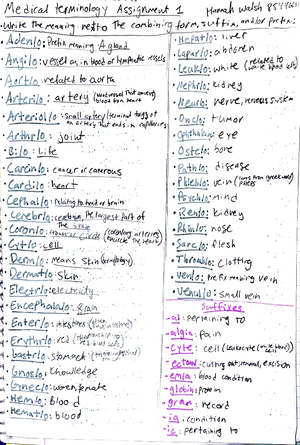 Medical terminology Assignment 1 Hannah Walsh
Write the meaning next to the combining form, suffix, and/or prefix:
• Aden/o: Prefix meaning A gland
• Angi/o: vessel or in blood or lymphatic vessels
• Aort/o: related to aorta
• Arteri/o: artery (blood vessel that carries blood from heart
• Arteriol/o: small artery/terminal twigs of an artery that ends in capillaries
• Arthr/o: joint
• Bi/o: Life
• Carcin/o: cancer or cancerous
• Cardi/o: heart
• Cephal/o: relating to head or brain
• Cerebr/o: cerebrum, the largest part of the brain
• Coron/o: (coronary arteries encircle the heart)
• Cyt/o: cell
• Derm/o: means skin
• Dermat/o: skin
• Electr/o: electricity
• Encephal/o: Brain
• Enter/o: intestines
• Erythr/o: red
• Gastr/o: stomach
• Gnos/o: knowledge
• Gynec/o: women, female
• Hem/o: Blood
• Hemat/o: blood
• Hepat/o: liver
• Lapar/o: abdomen
• Leuk/o: white (related to white blood cells)
• Nephr/o: kidney
• Neur/o: nerve, nervous system
• Onc/o: tumor
• Ophthalm/o: eye
• Oste/o: bone
• Path/o: disease
• Phleb/o: vein
• Psych/o: mind
• Ren/o: kidney
• Rhin/o: nose
• Sarc/o: flesh
• Thromb/o: clotting
• ven/o: prefix meaning vein
• venul/o: small vein
Suffixes
-al: pertaining to
-algia: pain
-cyte: cell
-ectomy: cutting out, removal, excision
-emia: blood condition
-globin: protein
-gram: record
-ia: condition
-ic: pertaining to